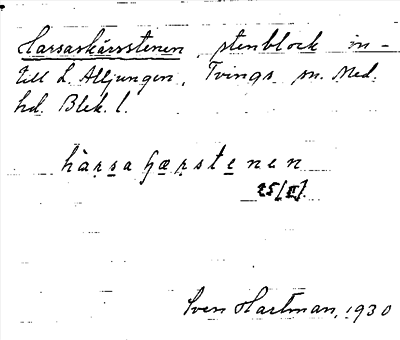 Harsaskärsstenen, stenblock in-
till L. Alljungen, Tvings sn. Med.
hd. Blek. l.
hàrsaɧærstenen
25/II.
Sven Hartman, 1930